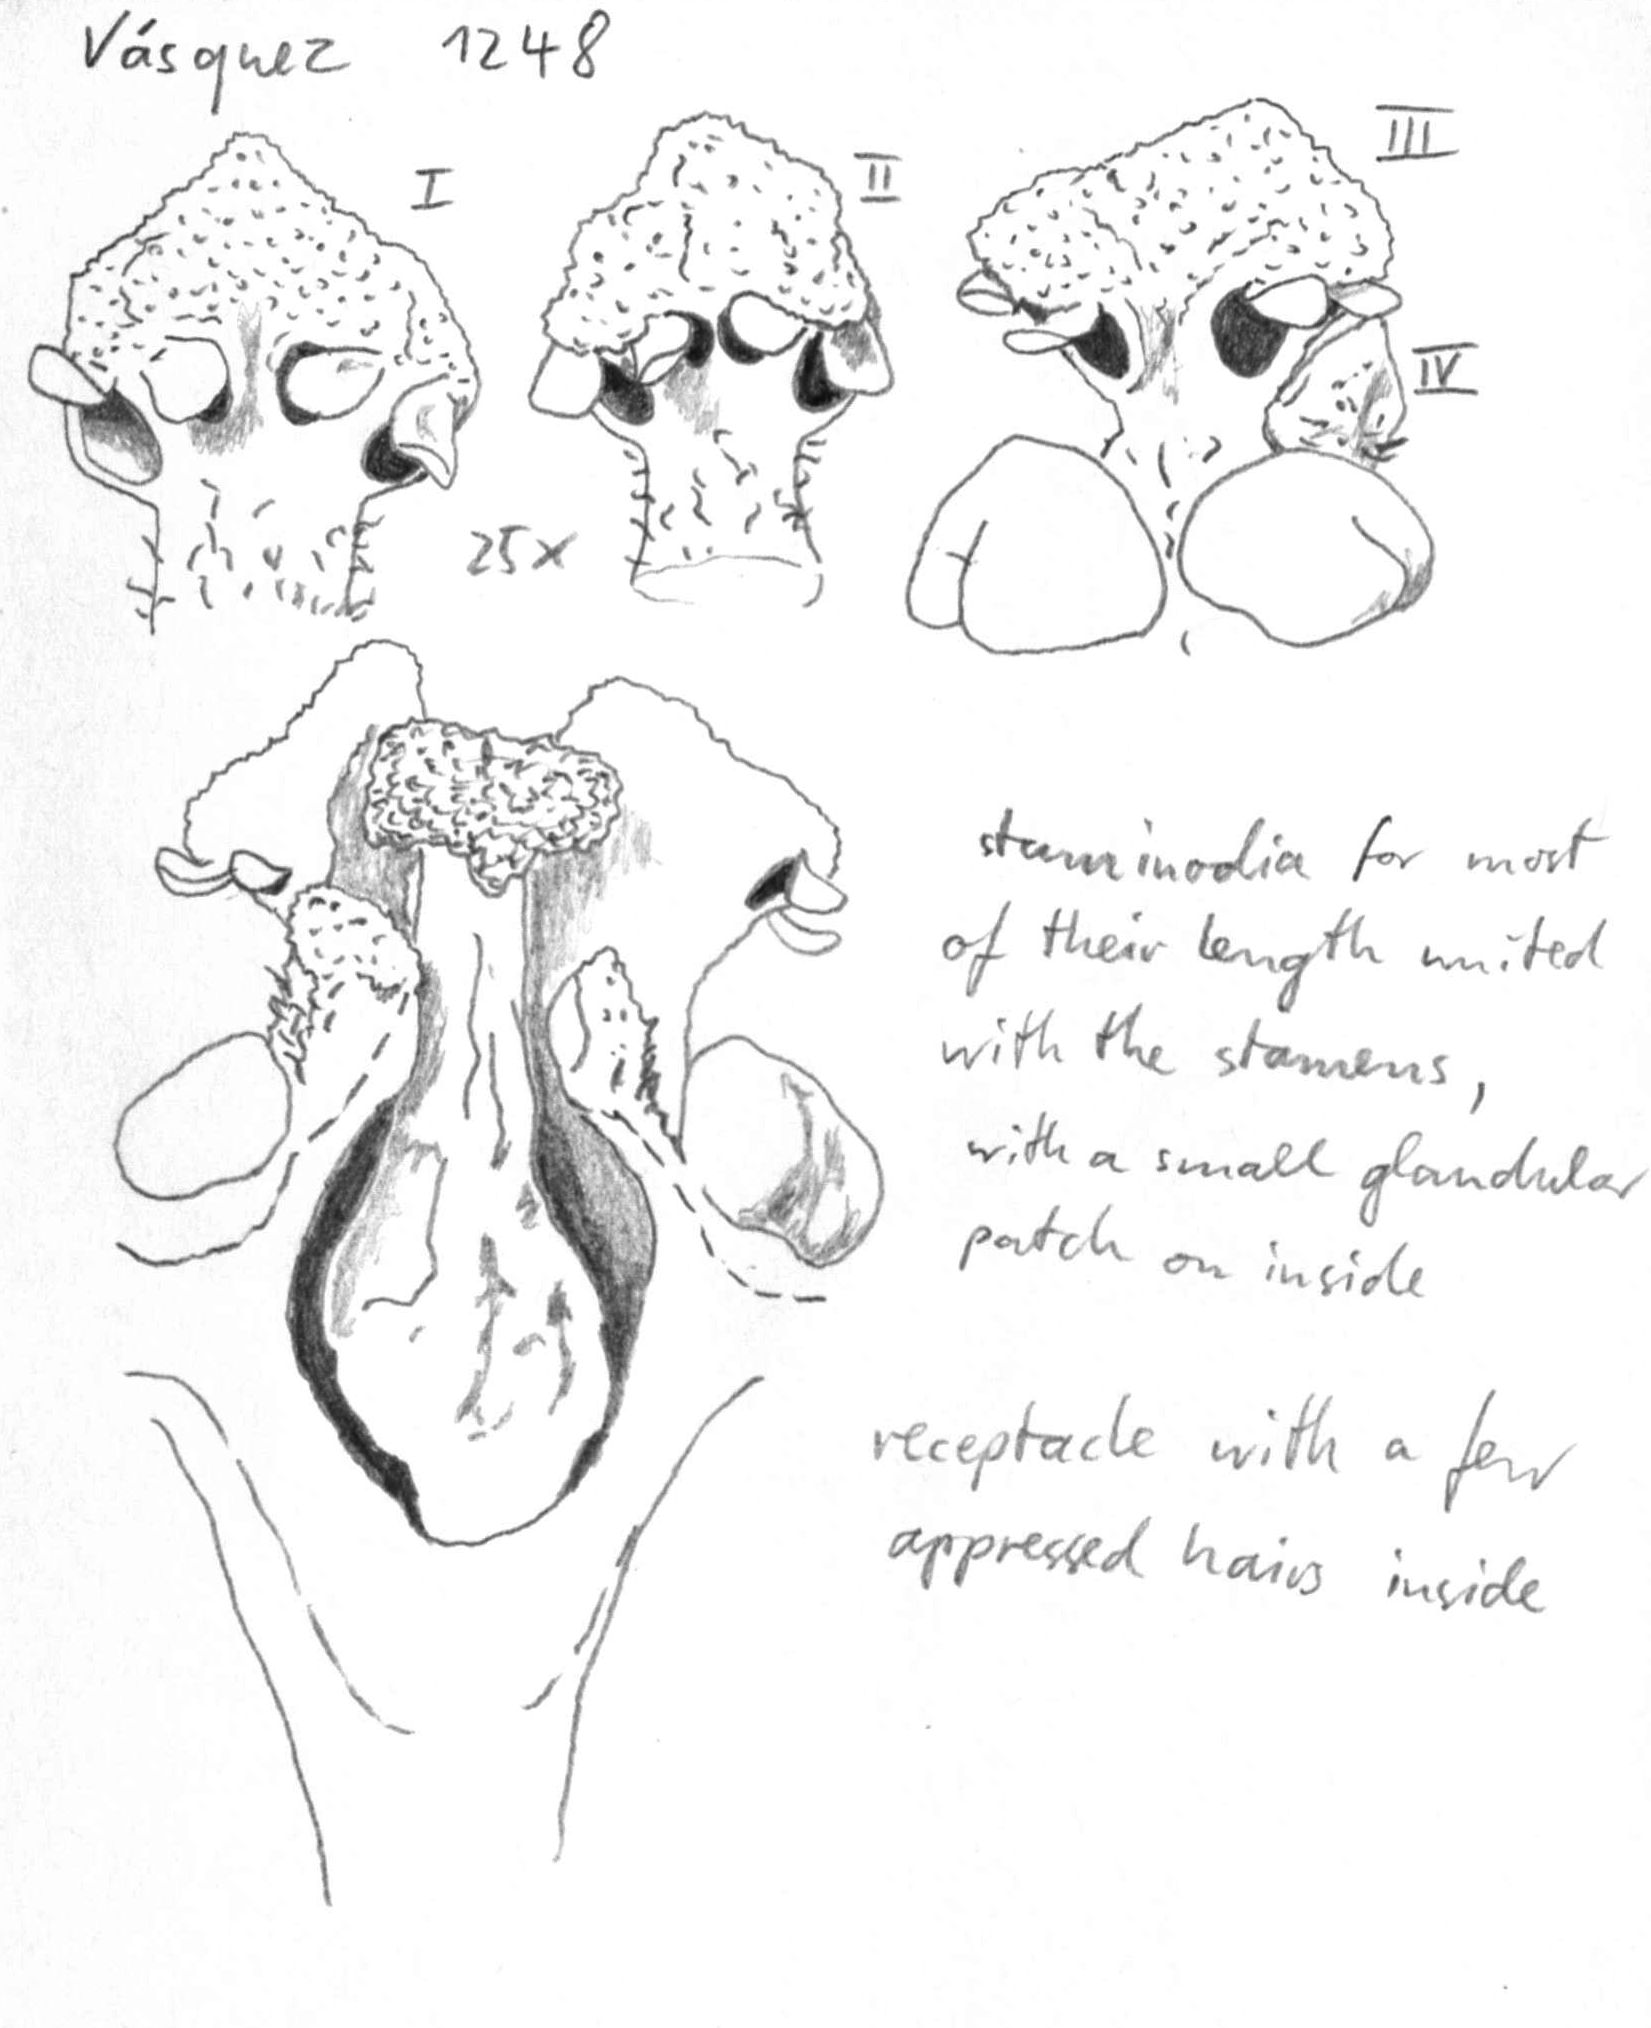 Vásquez 1248
I
II
III
IV
25x
staminodia for most
of their length united
with the stamens,
with a small glandular
patch on inside
receptacle with a few
appressed hairs inside